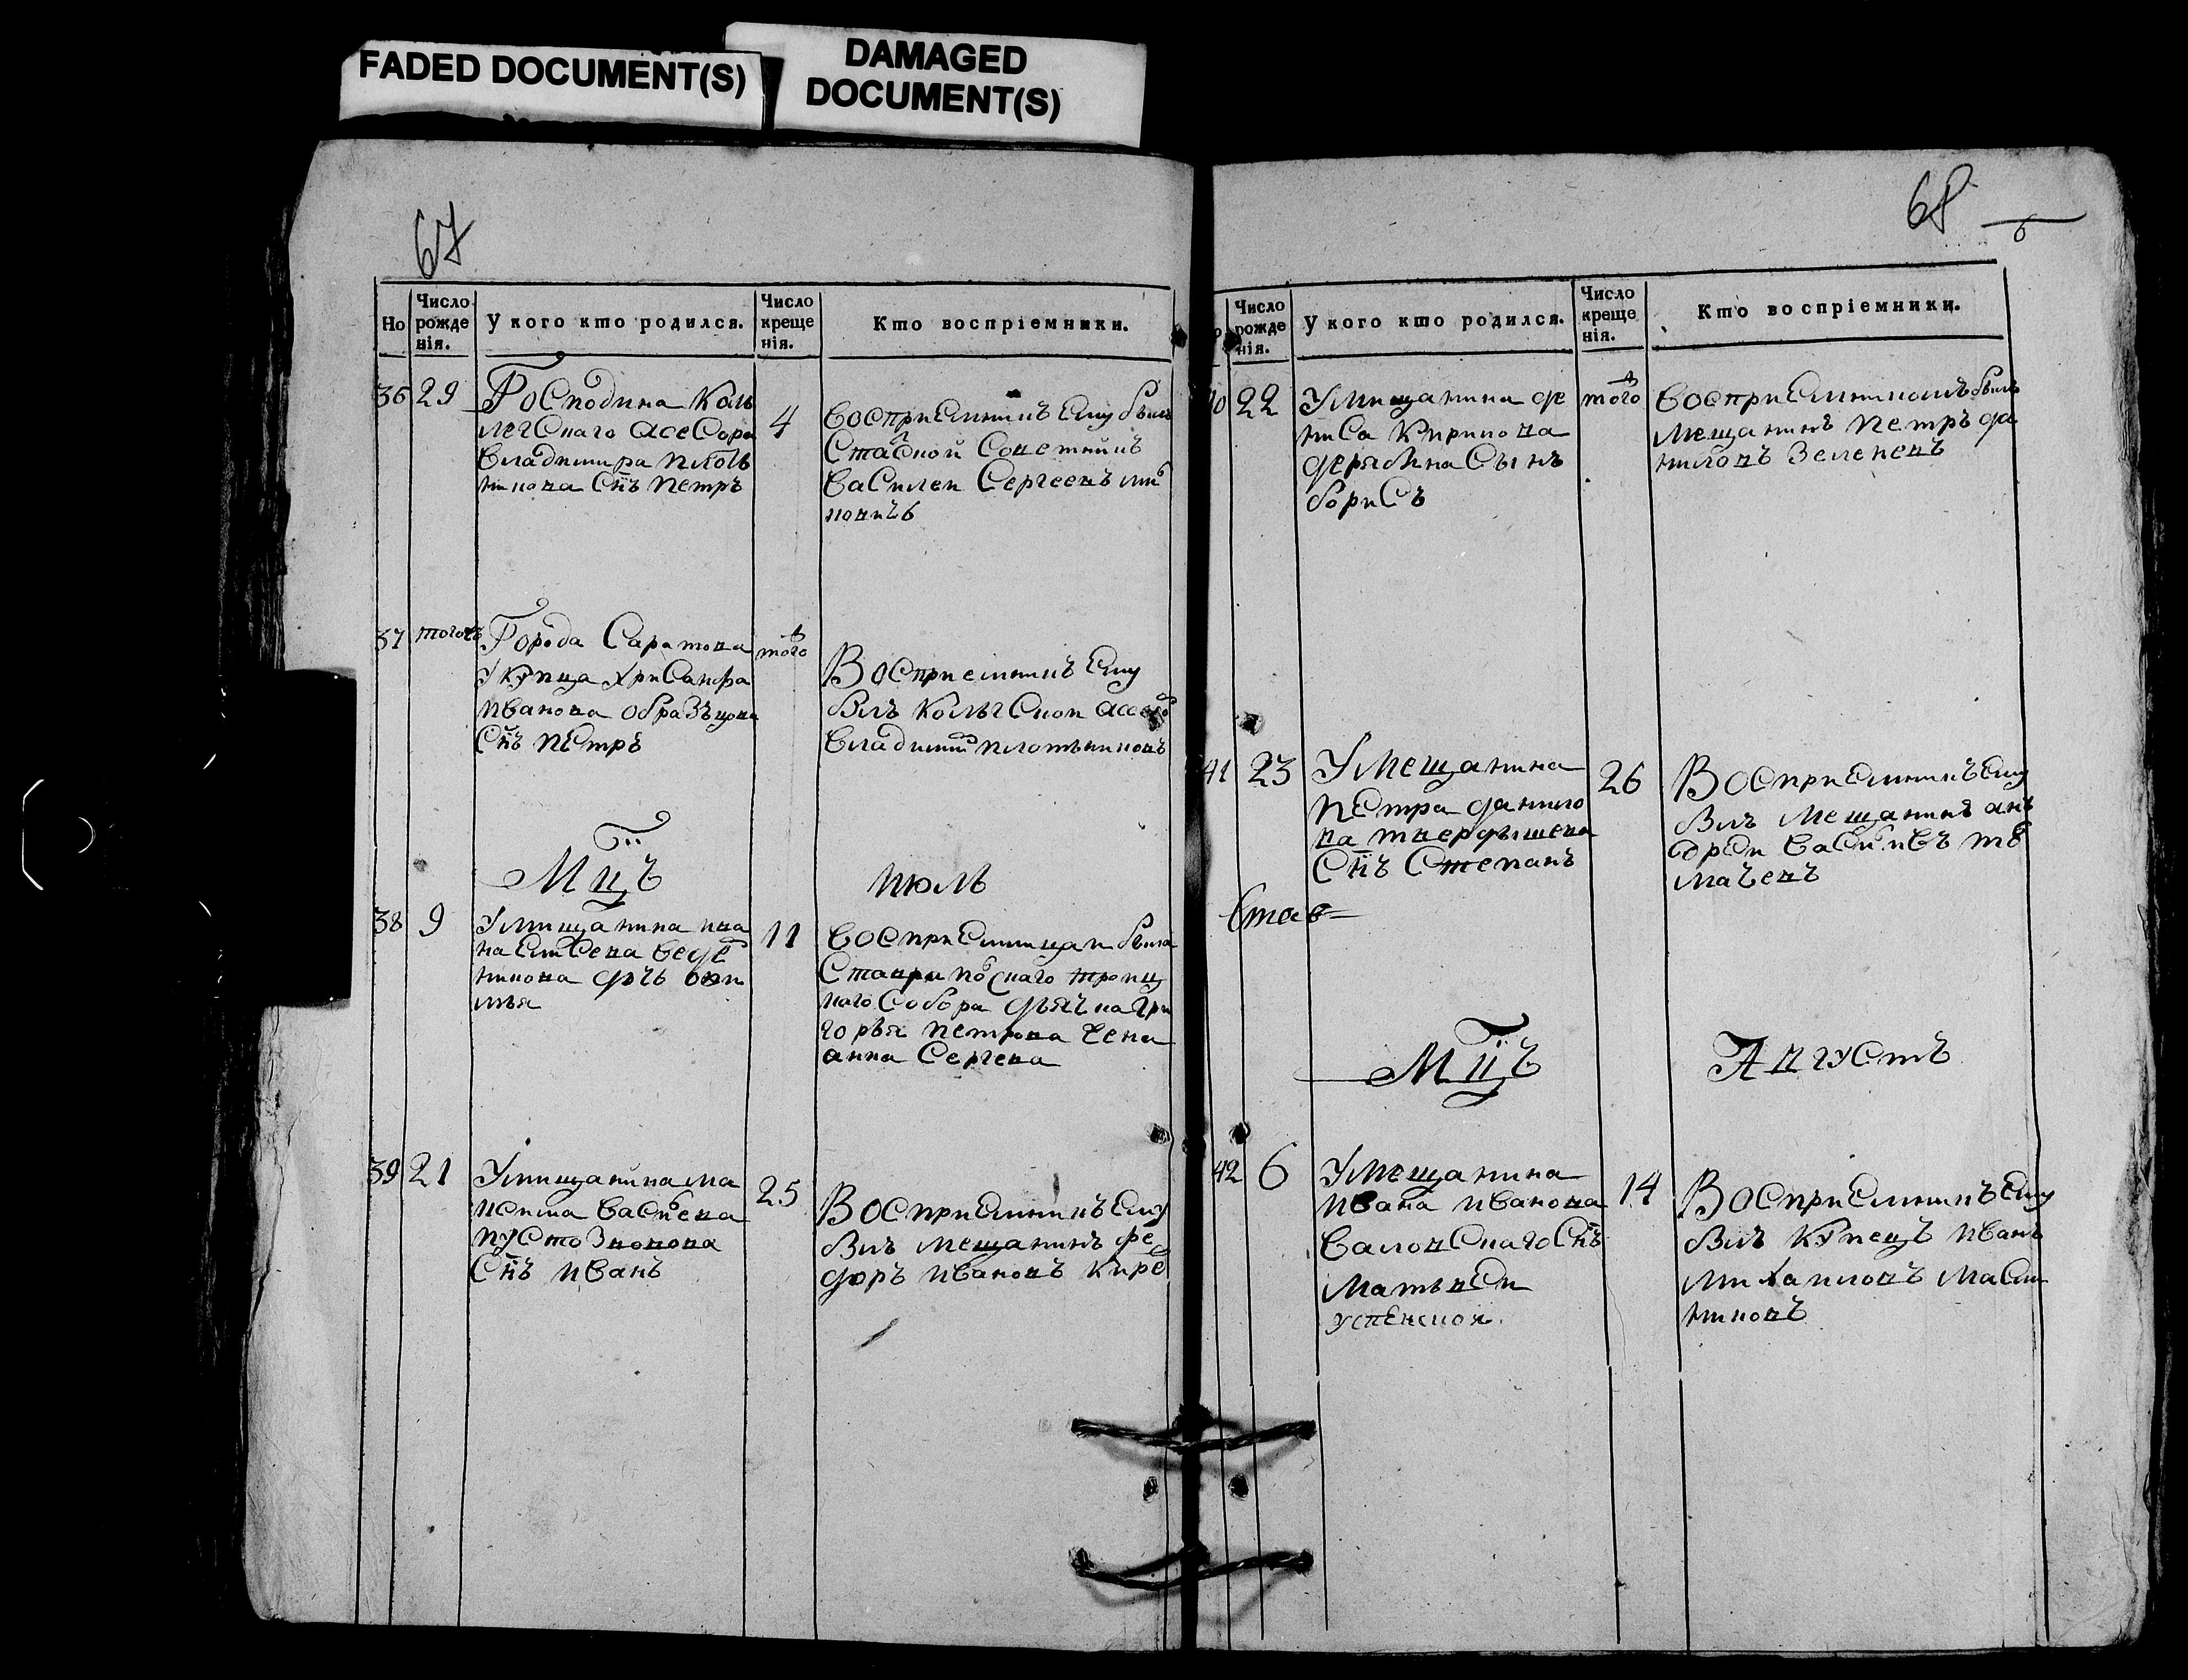 FADED DOCUMENT(S)
DAMAGED
DOCUMENT(S)
67
Но
Число
рожде
нія.
У кого кто родился.
Число
креще
нія.
Кто воспріемники.
36
29
Господина кол
лежскаго асесора
владимира плот
никова снъ петръ
4
восприемникъ ему былъ
статской советникъ
василеи Сергеевъ
37
тогожъ
Города Саратова
укупца хрисанфа
иванова образъцова
Снъ петръ
тогож
Восприемникъ ему
былъ колежскои асесор
владимир плотъниковъ
Мцъ
июль
38
9
Умищанина ива
на
никова дчь
11
восприемницаи была
Ставропольскаго троиц
каго Собора дьячка гри
горья петрова жена
анна Сергева
39
21
Умищанина ма
ксима васильева
пустозвонова
Снъ иванъ
25
Восприемникъ ему
былъ мещанинъ фе
доръ ивановъ
68
Число
рожде
нія.
У кого кто родился.
Число
креще
нія.
Кто воспріемники.
40
22
Умищанина де
ниса кирилова
дерябина Сынъ
борисъ
тогож
восприемникомъ былъ
мещанинъ петръ да
ниловъ зеленевъ
41
23
Умещанина
петра данило
ва твердышева
Снъ Степанъ
26
Восприемникъ ему
былъ мещанинъ ан
дреи васильевъ тол
мачевъ
Став
Мцъ
Августъ
42
6
Умещанина
ивана иванова
Снъ
матьвеи
успенскои
14
Восприемникъ ему
былъ купецъ иванъ
михаиловъ масле
никовъ